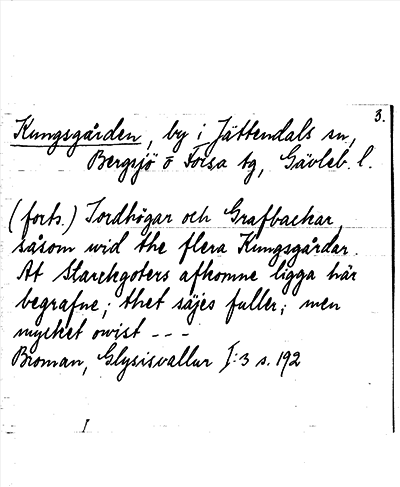 3.
Kungsgården, by i Jättendals sn,
Bergsjö o Forsa tg, Gävleb. l.
(forts.) Jordhögar och Grafbackar,
såsom wid the flera Kungsgårdar.
At Starckoters afkomne ligga här
begrafne; thet säjes fuller; men
mycket owist - - -
Broman, Glysisvallur I:3 s. 192
I